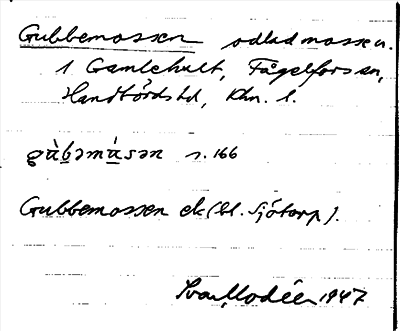 Gubbemossen odlad mosse n.
1 Gamlehult, Fågelfors sn,
Handbörds hd, Klm. l.
s. 166
Gubbemossen ek (bl. Sjötorp).
Ivar Modéer 1947